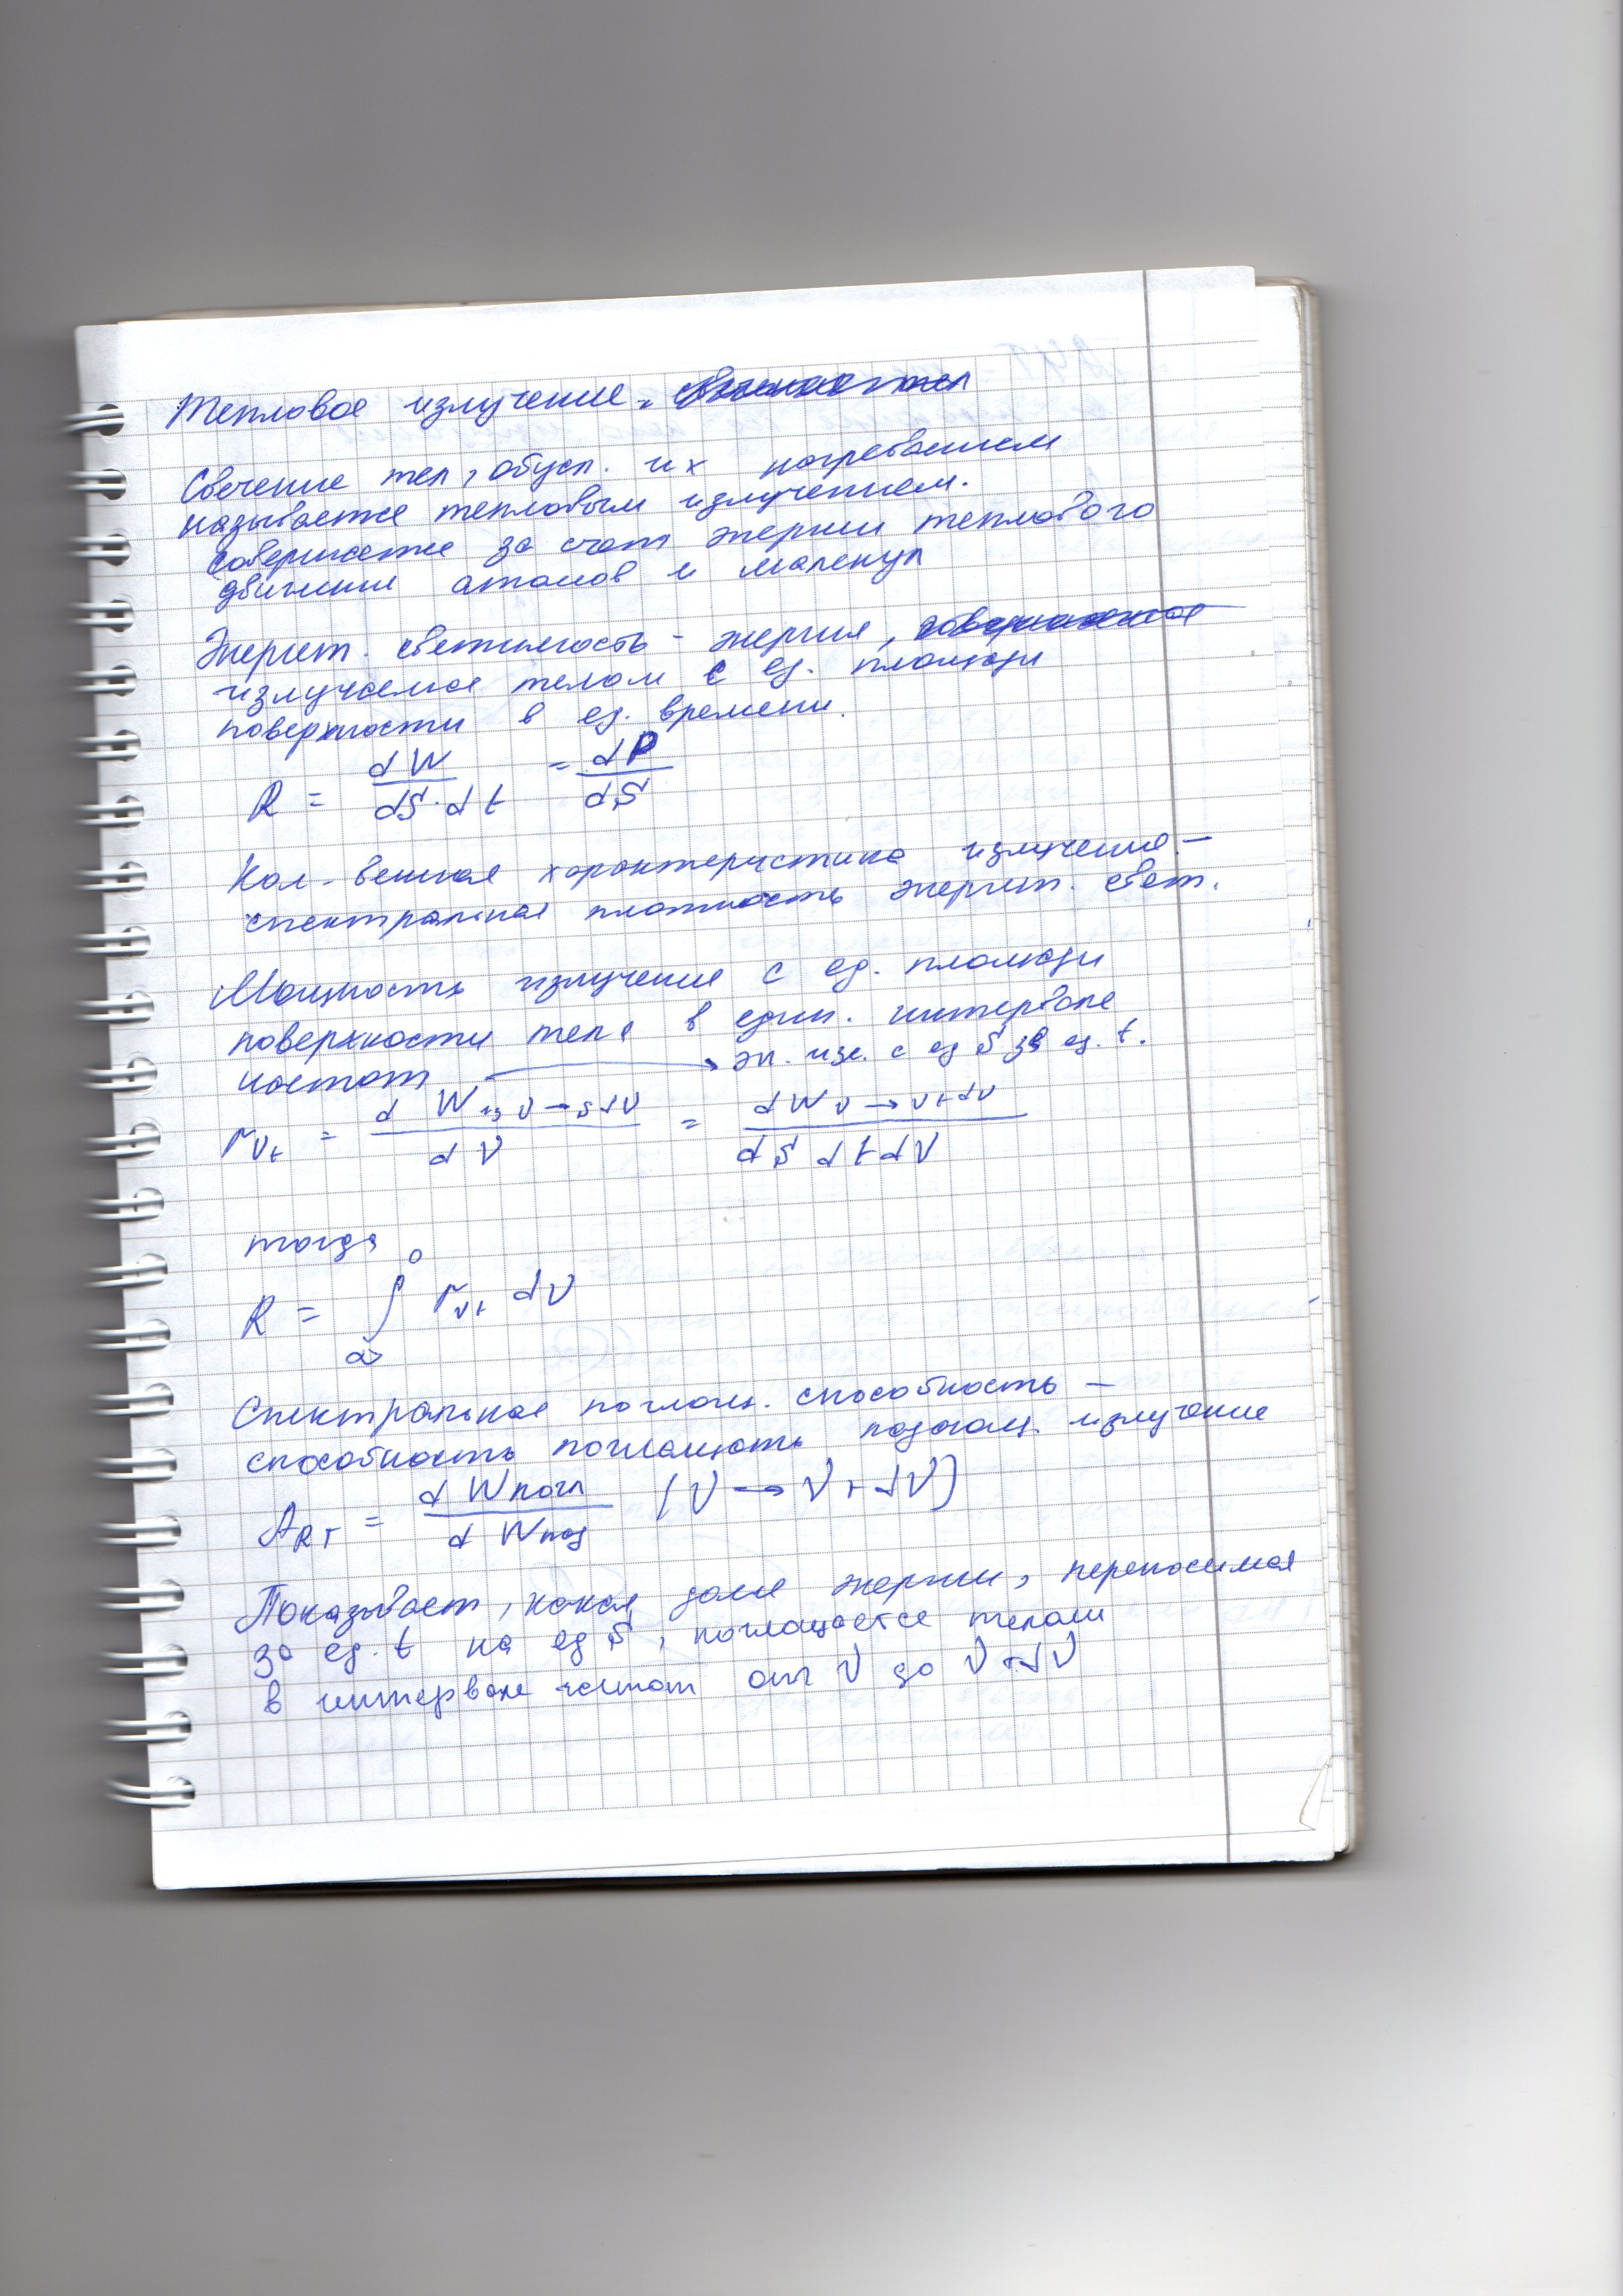 Тепловое излучение.
Свечение тел, обусл. их нагреванием
называется тепловым излучением.
совершается за счет энергии теплового
движения атомов и малекул
Энергет. светимость - энергия,
излучаемая телом с ед. площади
поверхности в ед. времени.
R = dW / dS·dt = dP / dS
Кол-венная характеристика излучения -
спектральная плотность энергет. свет.
Мощность излучения с ед. площади
поверхности тела в един. интервале
частот → эн. изл. с ед S за ед. t.
r_νt = d W ν→ dν / dν = dW ν→ν+dν / dS dt dν
тогда
R = ∫ (0 сверху, ∞ снизу) r_νt dν
Спектральная поглощ. способность -
способность поглощать подающ. излучение
A_RT = d Wпогл / d Wпад (ν → ν + dν)
Показывает, какая доля энергии, переносимая
за ед. t на ед S, поглощается телом
в интервале частот от ν до ν+dν